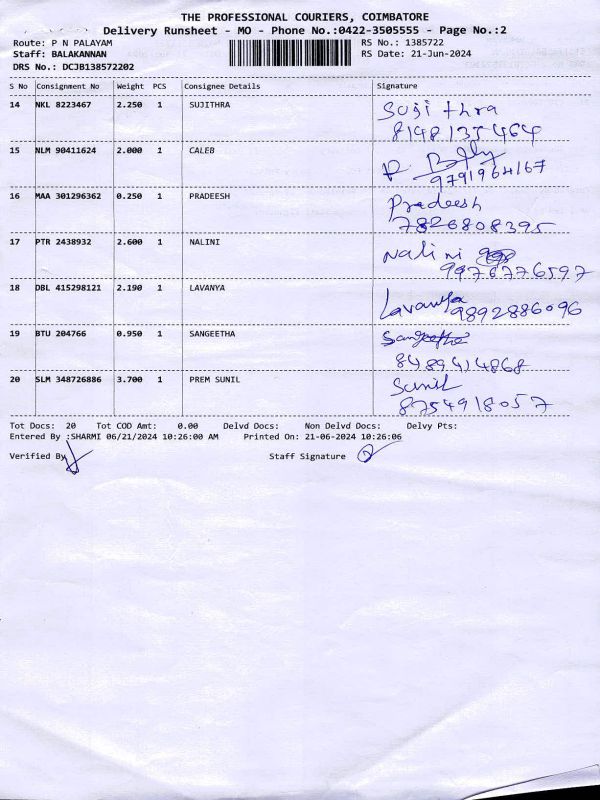 THE PROFESSIONAL COURIERS, COIMBATORE
Delivery Runsheet - MO - Phone No.:0422-3505555 - Page No.:2
Route: P N PALAYAM
Staff: BALAKANNAN
DRS No.: DCJB138572202
RS No.: 1385722
RS Date: 21-Jun-2024
S No Consignment No Weight PCS Consignee Details Signature
14 NKL 8223467 2.250 1 SUJITHRA Sujithra
8148135464
15 NLM 90411624 2.000 1 CALEB
9791964167
16 MAA 301296362 0.250 1 PRADEESH Pradeesh
7826808395
17 PTR 2438932 2.600 1 NALINI Nalini
9976776597
18 DBL 415298121 2.190 1 LAVANYA Lavanya
9892886096
19 BTU 204766 0.950 1 SANGEETHA Sangeetha
8489414868
20 SLM 348726886 3.700 1 PREM SUNIL Sunil
8754918057
Tot Docs: 20 Tot COD Amt: 0.00 Delvd Docs: Non Delvd Docs: Delvy Pts:
Entered By :SHARMI 06/21/2024 10:26:00 AM Printed On: 21-06-2024 10:26:06
Verified By Staff Signature